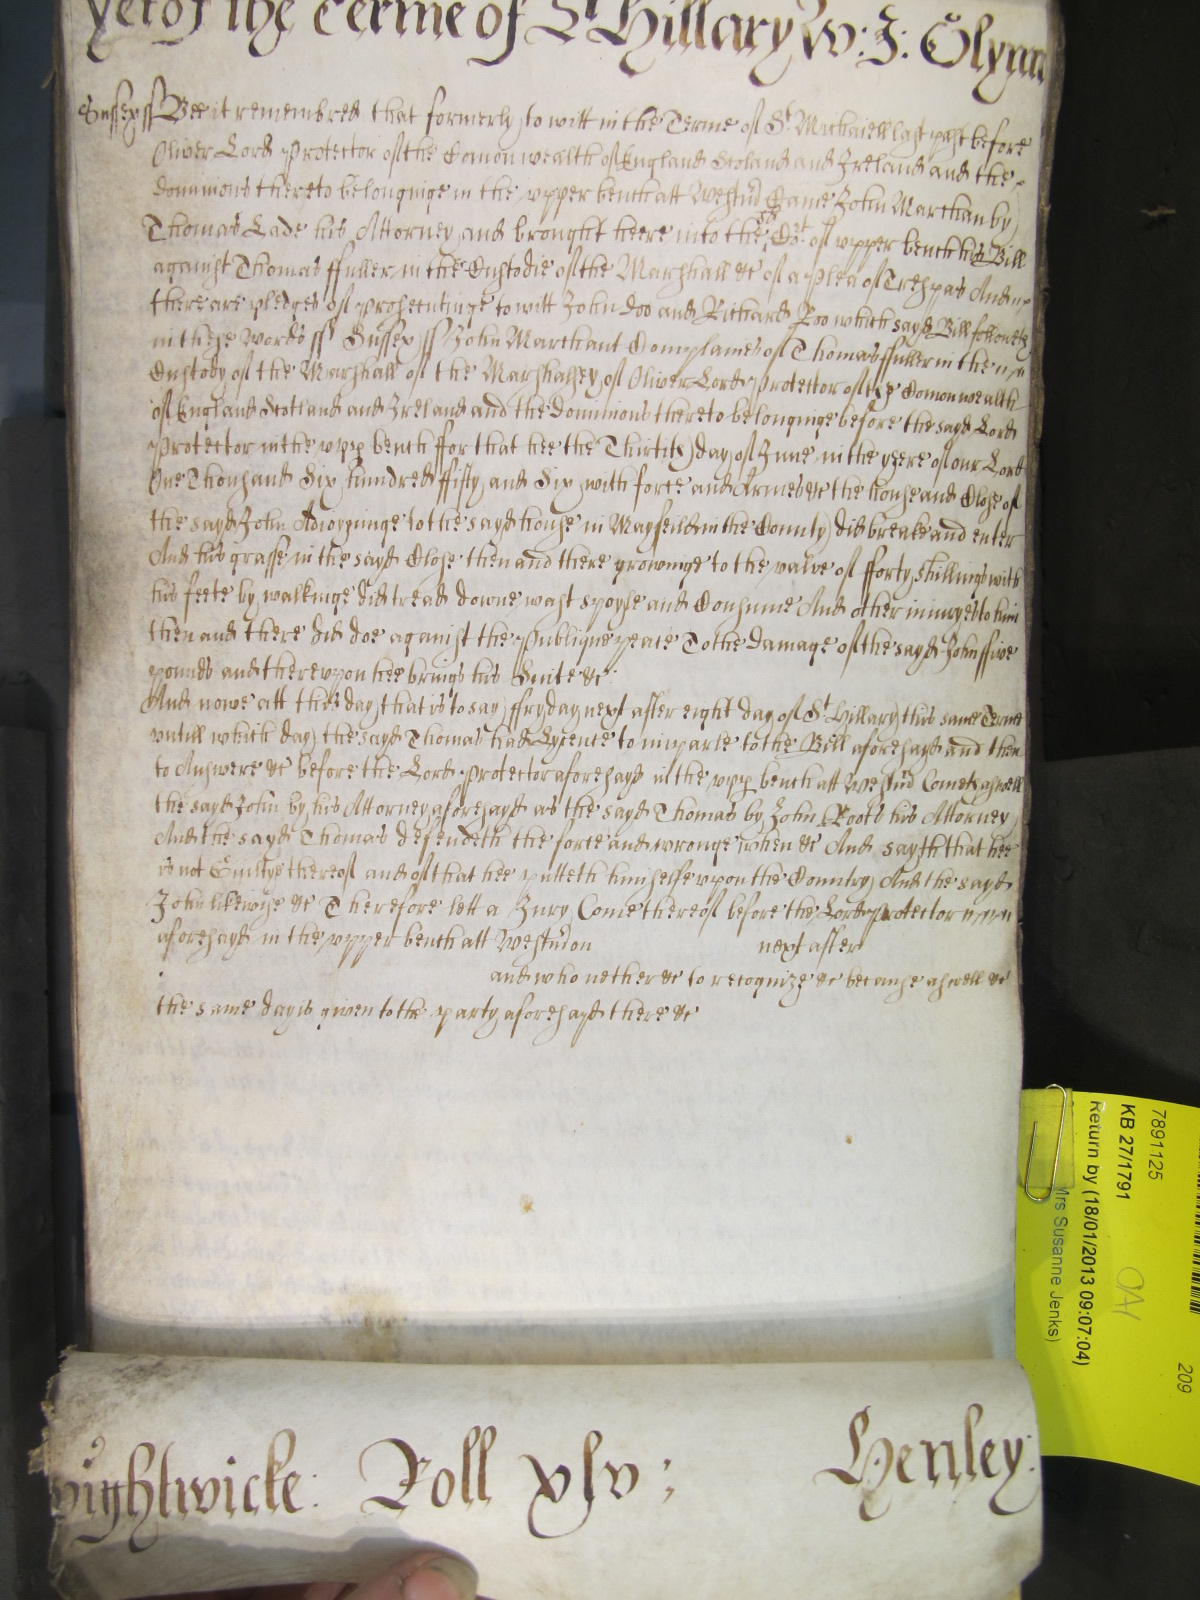 yet of the Terme of St Hillary W: J: Glynn
Sussex ss Bee it remembred that formerly to witt in the Terme of St. Michaell last past before
Oliver Lord Protector of the Comonwealth of England Scotland and Ireland and the
dominions thereto belonginge in the upper bench att Westmr Came John Marchan by
Thomas Lade his Attorney and brought heere into the sd Cort of upper bench his Bill
against Thomas ffuller in the Custodie of the Marshall &c of a Plea of Trespas And
there are pledges of prosecutinge to witt John doo and Richard Roo which sayd Bill followeth
in these words ss Sussex ss John Marchant Complaines of Thomas ffuller in the
Custody of the Marshall of the Marshallsey of Oliver Lord Protector of the Comonwealth
of England Scotland and Ireland and the dominions thereto belonginge before the sayd Lord
Protector in the upp bench ffor that hee the Thirtith day of June in the yeere of our Lord
One Thousand Six hundred ffifty and Six with force and Armes &c the house and Close of
the sayd John Adioyninge to the sayd house in Mayfeild in the County did breake and enter
And his grasse in the sayd Close then and there growinge to the value of fforty shillings with
his feete by walkinge did tread downe wast spoyle and Consume And other iniuryes to him
then and there did doe against the Publique peace To the damage of the sayd John ffive
pounds and thereupon hee brings his Suite &c
And nowe att this day that is to say ffryday next after eight day of St Hillary this same Terme
untill which day the sayd Thomas had Lycence to imparle to the Bill aforesayd and then
to Answere &c before the Lord Protector aforesayd in the upp bench att Westmr Cometh aswell
the sayd John by his Attorney aforesayd as the sayd Thomas by John Roots his Attorney
And the sayd Thomas defendeth the force and wronge when &c And sayth that hee
is not Guiltye thereof and of that hee putteth himselfe upon the Country And the sayd
John likewise &c Therefore lett a Jury Come thereof before the Lord Protector
aforesayd in the upper bench att Westmr on next after
and who nether &c to recognize &c because aswell &c
the same day is given to the party aforesayd there &c
wightwicke: Roll xlv; Henley:
7891125
KB 27/1791
Return by (18/01/2013 09:07:04)
Mrs Susanne Jenks)
209